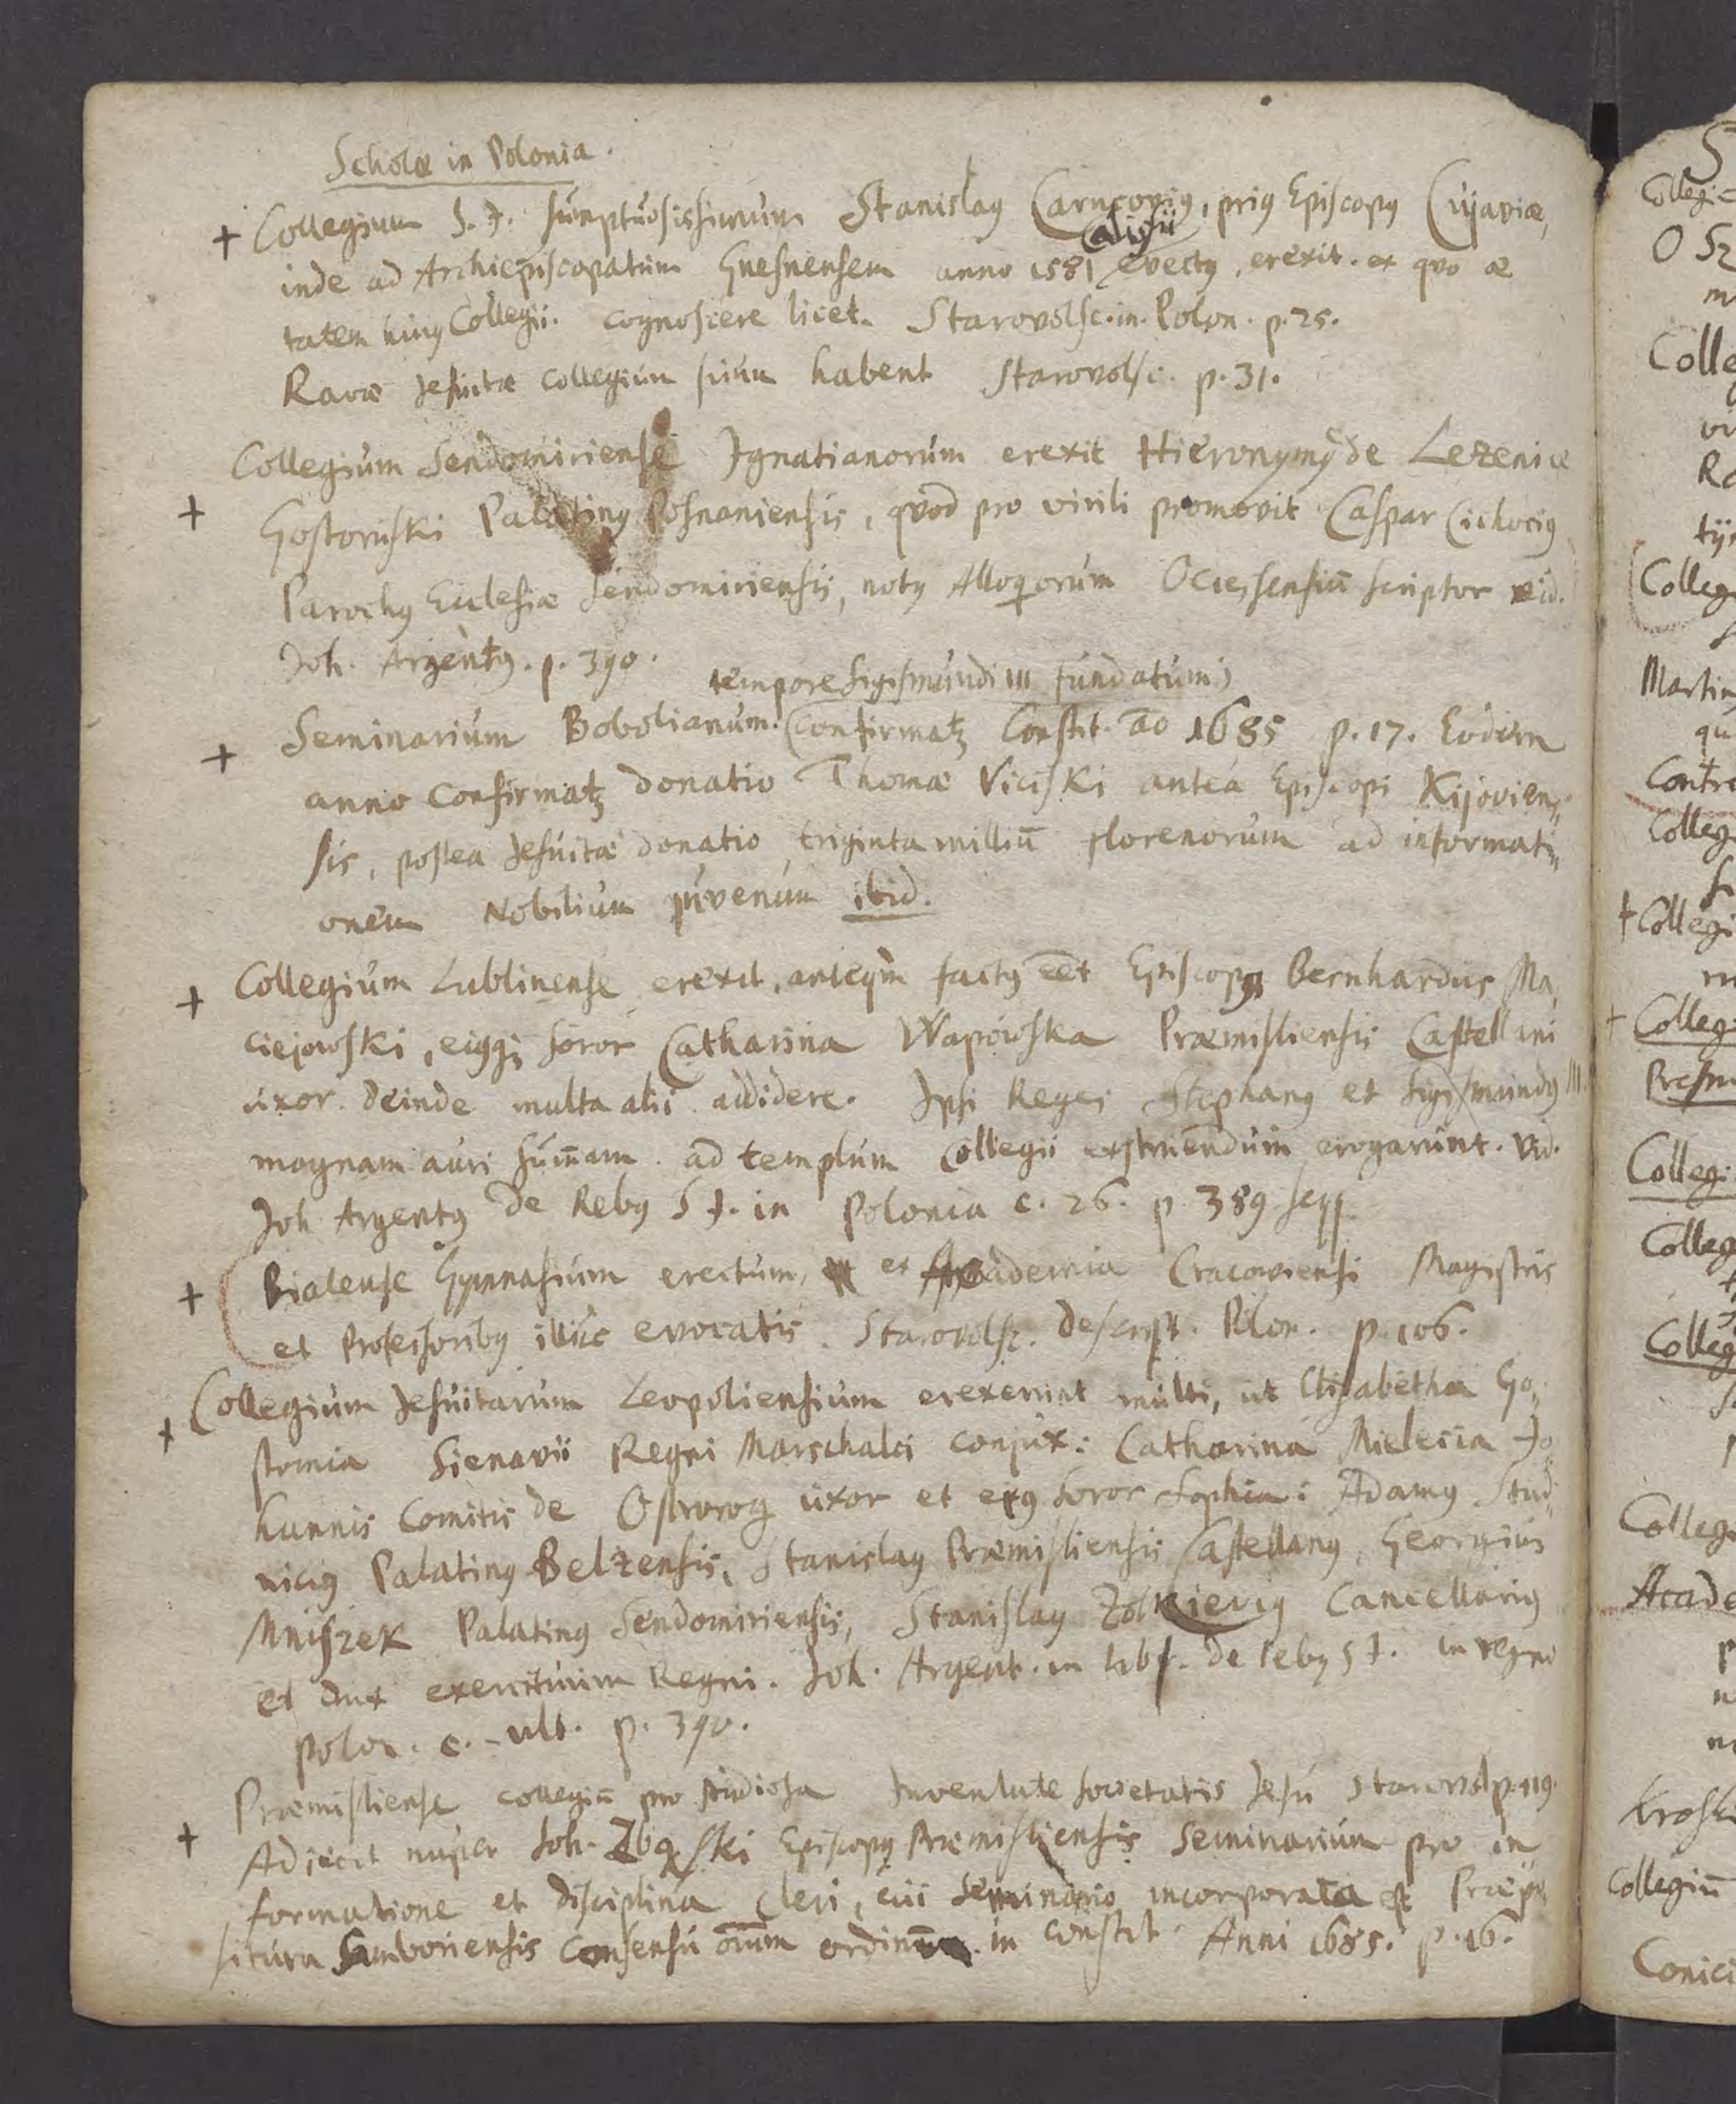 Scholæ in Polonia.
+ Collegium S. J. sumptuosissimum Stanislaus Carncovius, prius Episcopus Cujaviæ,
Calisii
inde ad Archiepiscopatum Gnesnensem anno 1581 evectus, erexit. ex quo æ
tatem hujus Collegii cognoscere licet. Starovolsc. in. Polon. p. 25.
Ravæ Jesuitæ Collegium suum habent Starovolsc. p. 31.
Collegium Sendomiriense Ignatianorum erexit Hieronymus de Lezenice
+ Gostomski Palatinus Posnaniensis, quod pro virili promovit Caspar Cichocius
Parochus Ecclesiæ Sendomiriensis, notus Alloquiorum Ociessensiū scriptor vid.
Joh. Argentus. p. 390.
tempore Sigismundi III fundatum)
+ Seminarium Bobolianum. (Confirmatz Constit. ao 1685 p. 17. Eodem
anno Confirmatz donatio Thomæ Viciski antea Episcopi Kijovien„
sis, postea Jesuitæ donatio triginta milliū florenorum ad informati„
onem Nobilium juvenum ibid.
+ Collegium Lublinense erexit, anteqm factus eēt Episcopus Bernhardus Ma
ciejowski, ejusq; soror Catharina Wapowska Præmisliensis Castellani
uxor. deinde multa alii addidere. Ipsi Reges Stephanus et Sigismundus III.
magnam auri sum̄am ad templum Collegii exstruendum erogarunt. Vid.
Joh Argentus De Rebus S J. in Polonia c. 26. p 389 seqq
+ Bialense Gymnasium erectum, ex Academia Cracoviensi Magistris
et Professoribus illuc evocatis. Starovolsc. descript. Polon. p. 106.
+ Collegium Jesuitarum Leopoliensium erexerunt multi, ut Elisabetha Go„
stomia Sienavii Regni Marschalci conjux: Catharina Mielecia Jo
hannis Comitis de Ostrorog uxor et ejus soror Sophia: Adamus Stad
nicius Palatinus Belzensis, Stanislaus Præmisliensis Castellanus, Georgius
Mniszek Palatinus Sendomiriensis, Stanislaus Zolkievius Cancellarius
et dux exercituum Regni. Joh. Argent. in lib. de rebus S J. in regno
Polon. c. ult. p. 390.
Præmisliense collegiū pro studiosa Juventute Societatis Jesu Starovol p. 119.
+ Adjecit nuper Joh. Zbąski Episcopus Præmisliensis Seminarium pro in
formatione et disciplina Cleri, cui Seminario incorporata est Præpo
situra Samboriensis Consensu om̄um ordinum in Constit Anni 1685. p. 16.